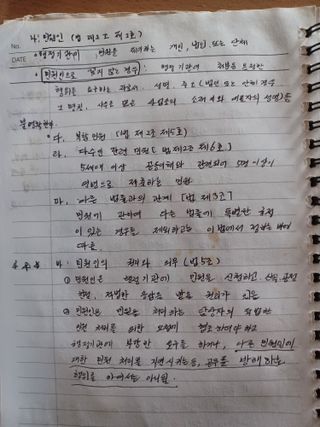 나. 민원인 (법 제2조 제2호)
No.
DATE • 행정기관에 민원을 제기하는 개인, 법인 또는 단체
• 민원인으로 보지 않는 경우: 행정기관에 처분 등
행위를 요구하는 자로서 성명, 주소 (법인 또는 단체 경우
그 명칭, 사무소 또는 사업소의 소재지와 대표자의 성명) 등
다. 복합 민원 (법 제2조 제5호)
라. 다수인 관련 민원 (법 제2조 제6호)
5세대 이상 공동이해와 관련되어 5명 이상이
연명으로 제출하는 민원
마. 다른 법률과의 관계 [법 제3조]
민원에 관하여 다른 법률에 특별한 규정
이 있는 경우를 제외하고는 이 법에서 정하는 바에
따름.
바. 민원인의 권리와 의무 (법 5조)
① 민원인은 행정기관에 민원을 신청하고 신속, 공정
친절, 적법한 응답을 받을 권리가 있음
② 민원인은 민원을 처리하는 담당자의 적법한
민원 처리를 위한 요청에 협조 하여야 하고
행정기관에 부당한 요구를 하거나, 다른 민원인에
대한 민원 처리를 지연시키는 등, 공무를 방해하는
행위를 하여서는 아니됨.